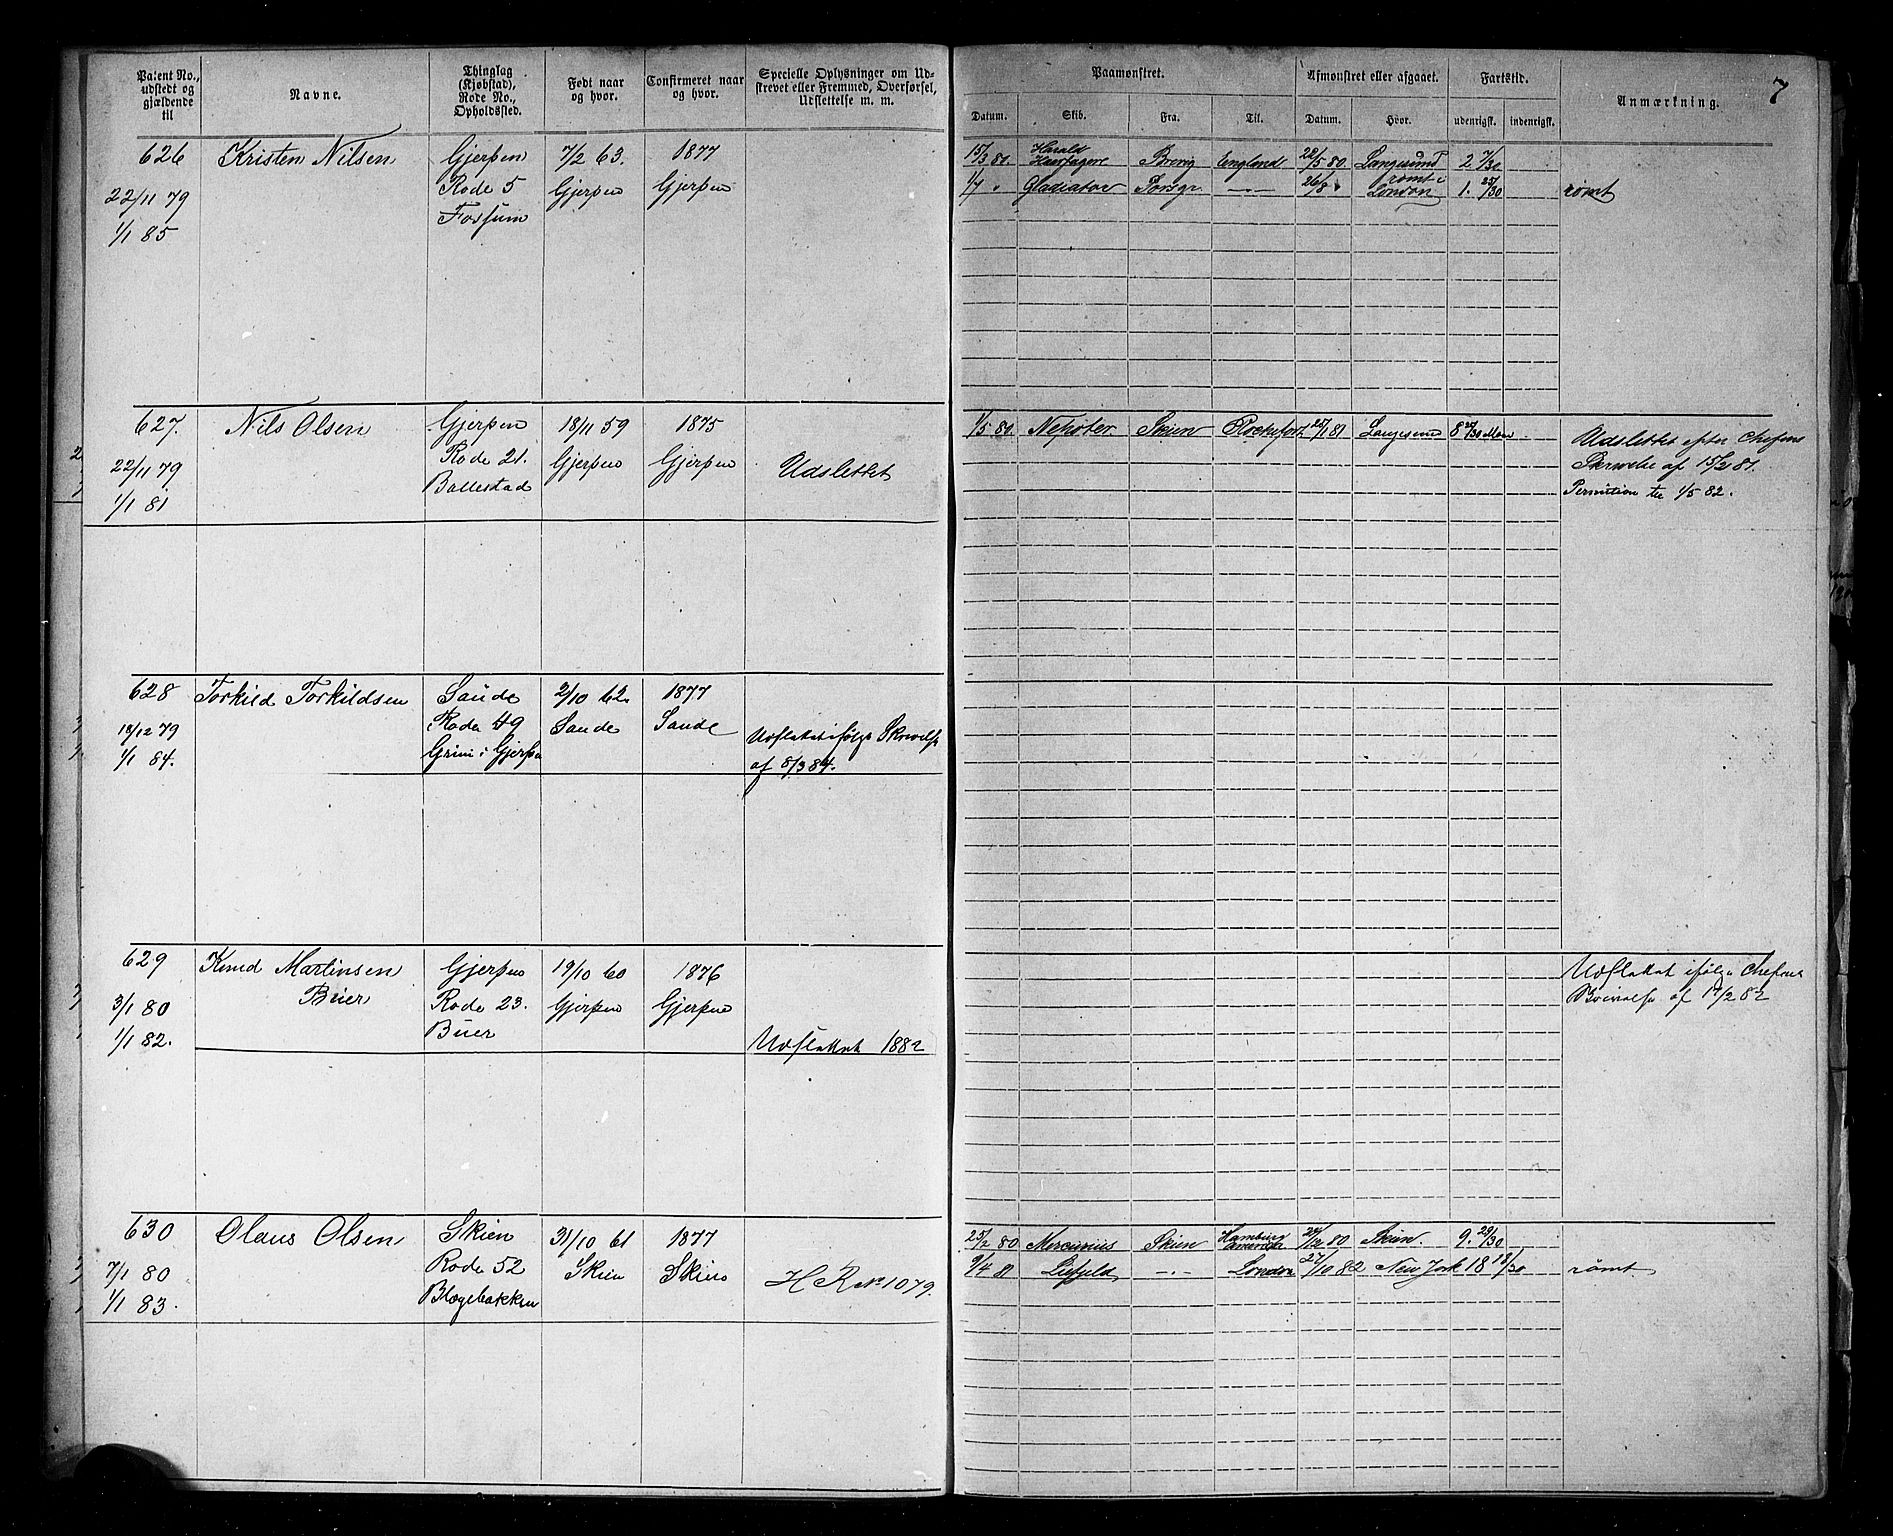 7
Patent No., udstedt og gjældende til
Navne.
Thinglag (Kjøbstad), Rode No., Opholdssted.
Født naar og hvor.
Confirmeret naar og hvor.
Specielle Oplysninger om Udskrevet eller Fremmed, Overførsel, Udslettelse m. m.
Paamønstret.
Afmønstret eller afgaaet.
Fartstid.
Anmærkning.
Datum.
Skib.
Fra.
Til.
Datum.
Hvor.
udenrigsk.
indenrigsk.
626 Kristen Nilsen Gjerpen 7/2 63. 1877
22/11 79 Rode 5 Gjerpen Gjerpen
1/1 85 Fossum
15/3 80. Harald Haarfagere Brevig England 28/5 80. Langesund 2 7/30
1/7 " Gladiator Porsgr. —"— 26/8 " rømt i London 1. 25/30 rømt
627. Nils Olsen Gjerpen 18/11 59 1875
22/11 79 Rode 21. Gjerpen Gjerpen Udslettet
1/1 81 Ballestad
1/5 80. Skien Rochefort Langesund
Udslettet efter Chefens
Skrivelse af 15/2 81.
Permition til 1/5 82.
628 Torkild Torkildsen Saude 2/10 62 1877
18/12 79 Rode 49 Saude Saude Udslettet ifølge Skrivelse
1/1 84. Grini i Gjerpen af 8/3 84.
629 Knud Martinsen Gjerpen 19/10 60 1876
Buer
3/1 80 Rode 23. Gjerpen Gjerpen
1/1 82. Buer Udslettet 1882
Udslettet ifølge Chefens
af 17/2 82
630 Olaus Olsen Skien 31/10 61 1877
7/1 80 Rode 52 Skien Skien H R No 1079.
1/1 83. Blegebakken
25/2 80 Mercurius Skien Hamburg 80 Skien. 9. 29/30
9/4 81 Liefjeld —"— London 27/10 82 New York 18 18/30 rømt